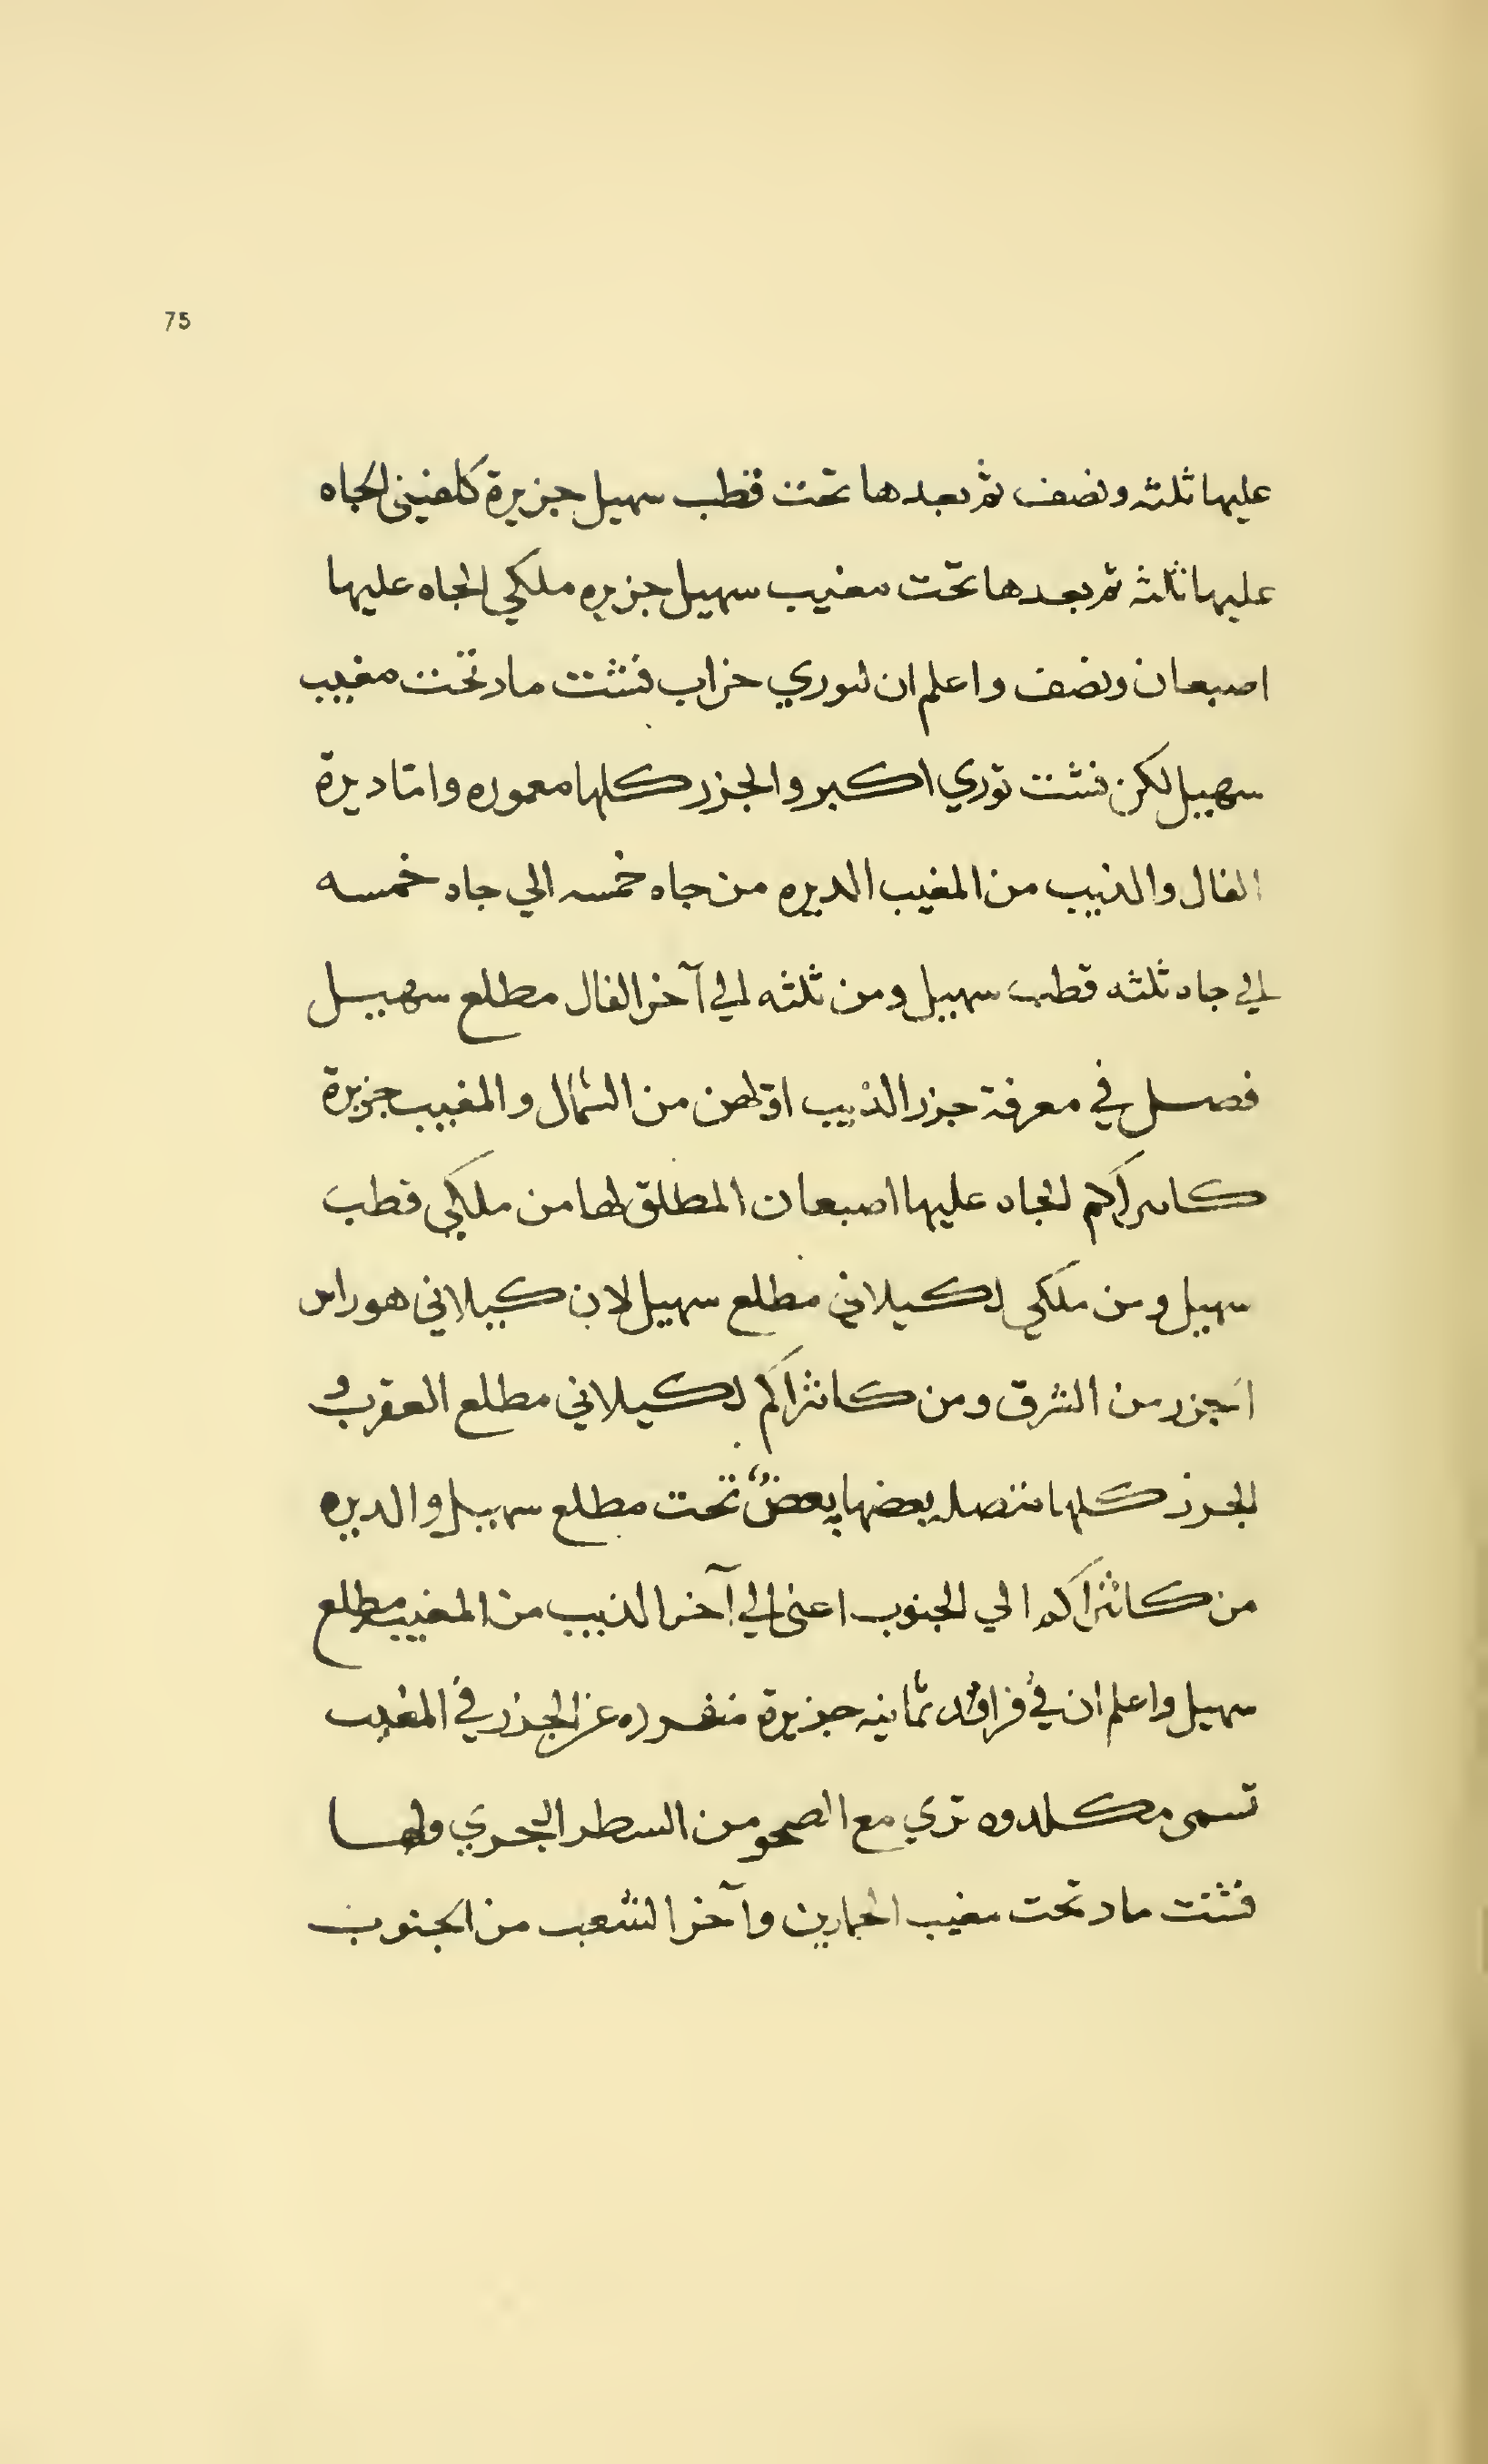 75
عليها ثلثه ونصف ثم بعدها تحت قطب سهيل جزيرة كلفيني الجاه
عليها ثلثه ثم بعدها تحت مغيب سهيل جزيره ملكي الجاه عليها
اصبعان ونصف واعلم ان لتوري خراب فشت ماد تحت مغيب
سهيل لكن فشت توري اكبر والجزر كلها معموره وامّا ديرة
الفال والذيب من المغيب الديره من جاه خمسه الي جاه خمسه
الي جاه ثلثه قطب سهيل ومن ثلثه الي آخر الفال مطلع سهيل
فصل في معرفة جزر الذيب اوّلهن من الشمال والمغيب جزيرة
الجاه عليها اصبعان المطلق لها من ملكي قطب
سهيل ومن ملكي لكيلاني مطلع سهيل لان كيلاني هو راس
الجزر من الشرق ومن كانثراكم لكيلاني مطلع العقرب و
الجرز كلها متصله بعضها بعضٌ تحت مطلع سهيل والديره
من كانثراكم الي الجنوب اعني الي آخر الذيب من المغيب مطلع
سهيل واعلم ان في فراقد ثمانيه جزيرة منفرده عن الجزر في المغيب
تسمى مكلدوه تري مع الصحو من السطر البحري ولها
فشت ماد تحت مغيب الحمارين وآخر الشعب من الجنوب